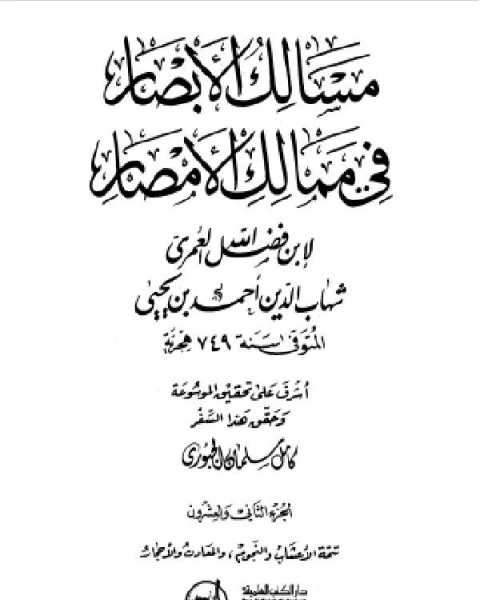 مَسَالِكُ الأَبْصَارِ
فِي مَمَالِكِ الأَمْصَارِ
لابن فضل الله العمري
شهاب الدين أحمد بن يحيى
المتوفى سنة ٧٤٩ هجرية
أشرف على تحقيق الموسوعة
وحقق هذا السفر
كامل سلمان الجبوري
الجزء الثاني والعشرون
تتمة الأعشاب والنجوم، والمعادن والأحجار
دار الكتب العلمية